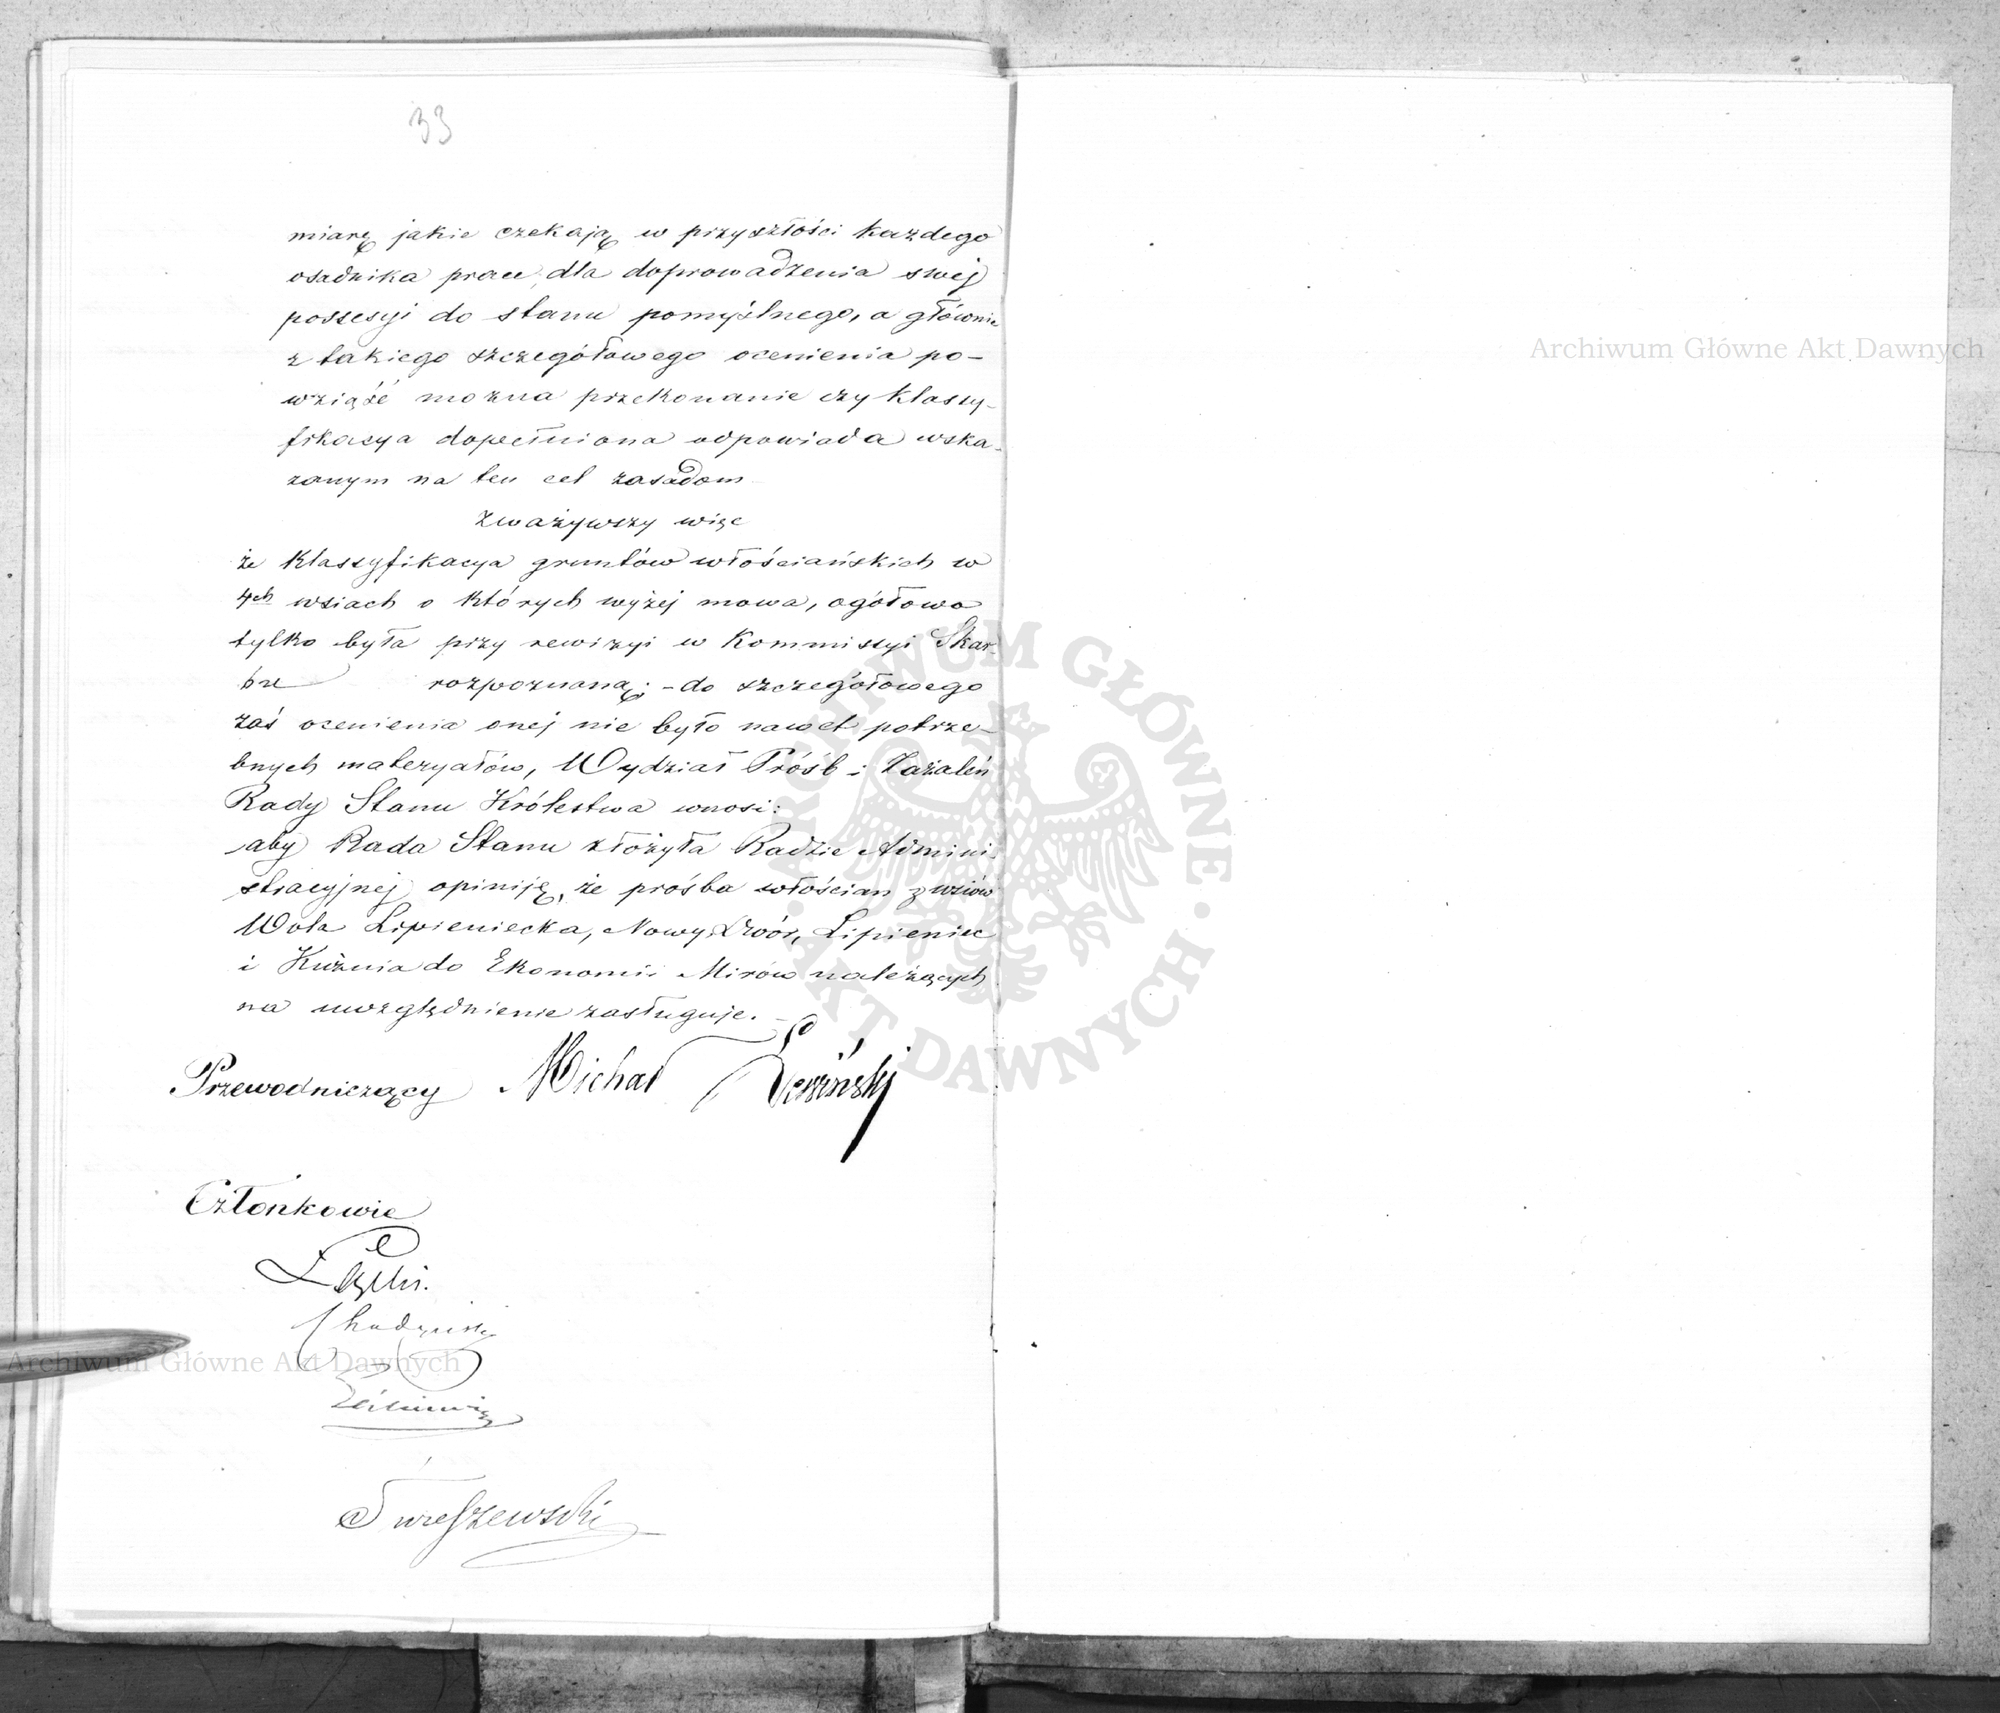 33
miarę jakie czekają w przyszłości każdego
osadnika prace, dla doprowadzenia swej
possesyi do stanu pomyślnego, a głównie
z takiego szczegółowego ocenienia po-
wziąść można przekonanie czy klassy-
fikacya dopełniona odpowiada wska-
zanym na ten cel zasadom
Zważywszy więc
że klassyfikacya gruntów włościańskich w
4ch wsiach o których wyżej mowa, ogółowo
tylko była przy rewizyi w Kommissyi Skar-
bu rozpoznaną; - do szczegółowego
zaś ocenienia onej nie było nawet potrze-
bnych materyałów, Wydział Próśb i Zażaleń
Rady Stanu Królestwa wnosi:
aby Rada Stanu złożyła Radzie Admini-
stracyjnej opiniję, że prośba włościan z wsiów
Wola Lipieniecka, Nowy Dwór, Lipieniec
i Kuźnia do Ekonomii Mirów należących
na uwzględnienie zasługuje. -
Przewodniczący Michał
Członkowie
Archiwum Główne Akt Dawnych
Archiwum Główne Akt Dawnych
ARCHIWUM GŁÓWNE · AKT DAWNYCH ·